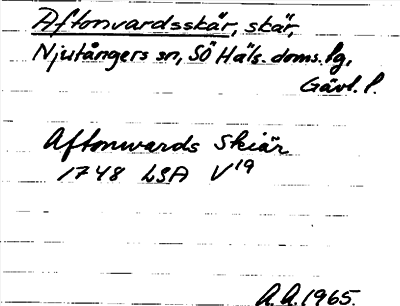 Aftonvardsskär, skär,
Njutångers sn, SÖ Häls. doms. lg,
Gävl. l.
Aftonwards Skiär
1748 LSA V19
A.A. 1965.